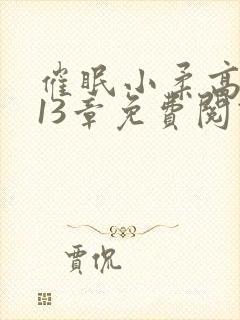 催眠小柔高
13章免費閱
賈侃